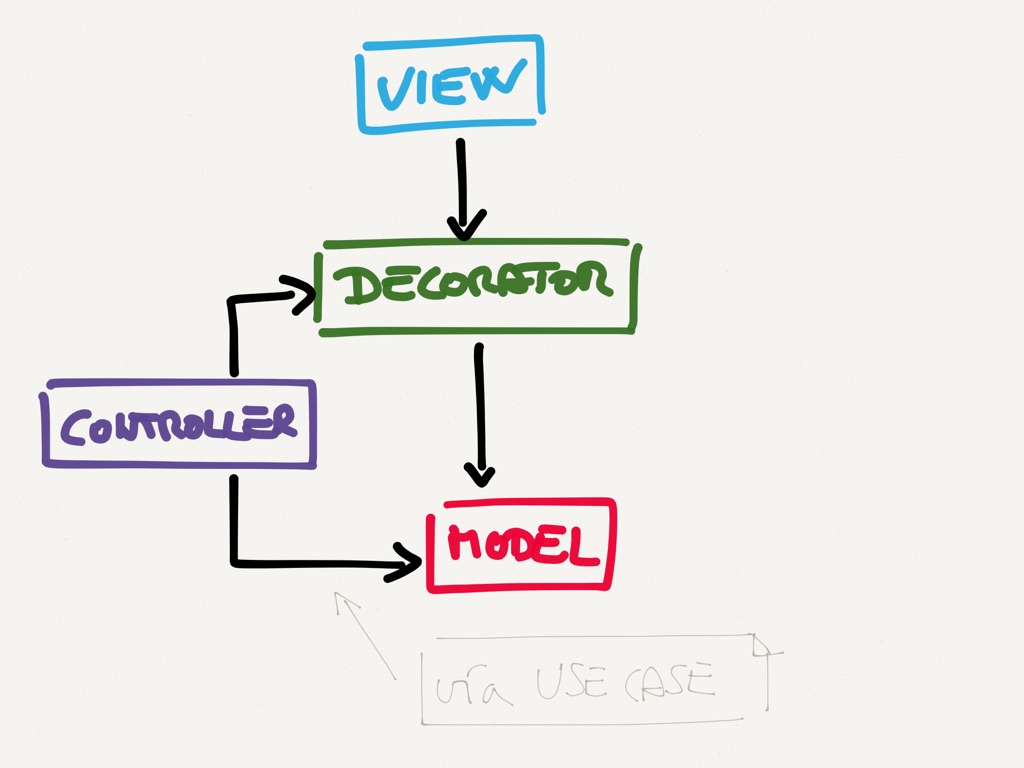 VIEW
DECORATOR
CONTROLLER
MODEL
vía USE CASE